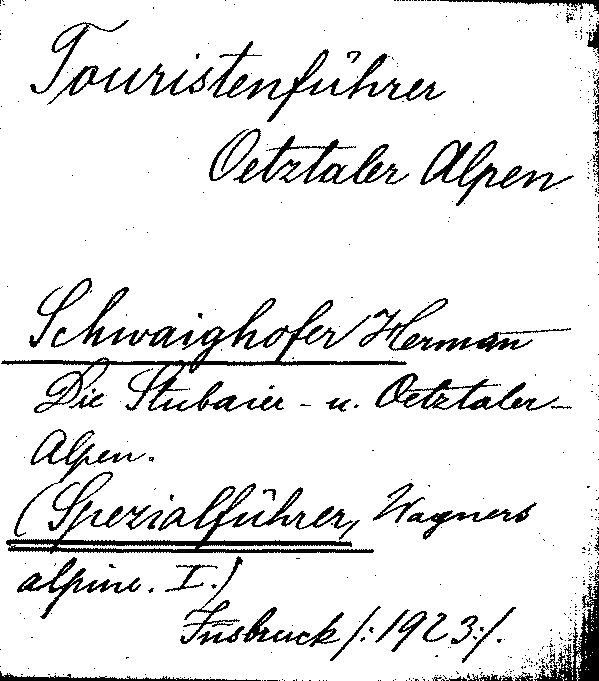 Touristenführer
Oetztaler Alpen
Schwaighofer Herman
Die Stubaier- u. Oetztaler-
Alpen.
(Spezialführer, Wagners
alpine. I.)
Insbruck /:1923:/.